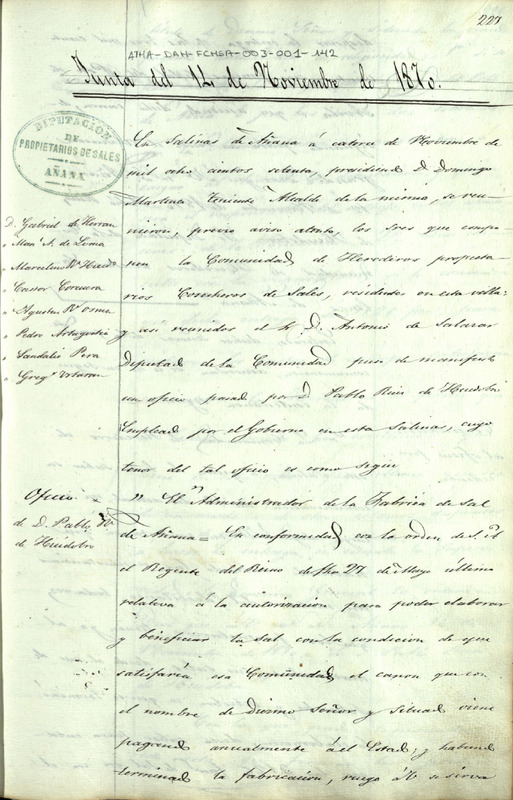 227
ATHA-DAH-FCHSA-003-001-142
Junta del 14 de Noviembre de 1870.
DIPUTACION
DE
PROPIETARIOS DE SALES
AÑANA
D. Gabriel de Herran
" Man. A. de Luma
" Marcelino Rz Huido
" Castor Corcuera
" Agustin Rz Osma
" Pedro
" Sandalio Pera
" Greg.º Urtaran
En Salinas de Añana á catorce de Noviembre de
mil ocho cientos setenta, presidiend D. Domingo
Martinez Teniente Alcalde de la misma, se reu-
nieron, previo aviso ablato, los Sres que compo
nen la Comunidad de Herederos propieta
rios Cosecheros de Sales, residentes en esta villa;
y asi reunidos el Sr. D. Antonio de Salazar
Diputad de la Comunidad puso de manifiesto
un oficio pasad por D. Pablo Ruiz de Huidobro
Emplead por el Gobierno en esta Salinas, cuyo
tenor del tal oficio es como sigue
Oficio
de D. Pablo Rz
de Huidobro
" El Administrador de la Fabrica de Sal
de Añana = En conformidad con la orden de S. A.
el Regente del Reino de fha 27 de Mayo último
relativa á la autorizacion para poder elaborar
y beneficiar la Sal con la condicion de que
satisfaría esa Comunidad el canon que con
el nombre de Diezmo Señor y Situad viene
pagand anualmente á el Estad; y habiend
terminad la fabricacion, ruego á V. se sirva